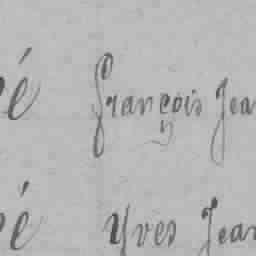 é François Jea
é Yves Jean